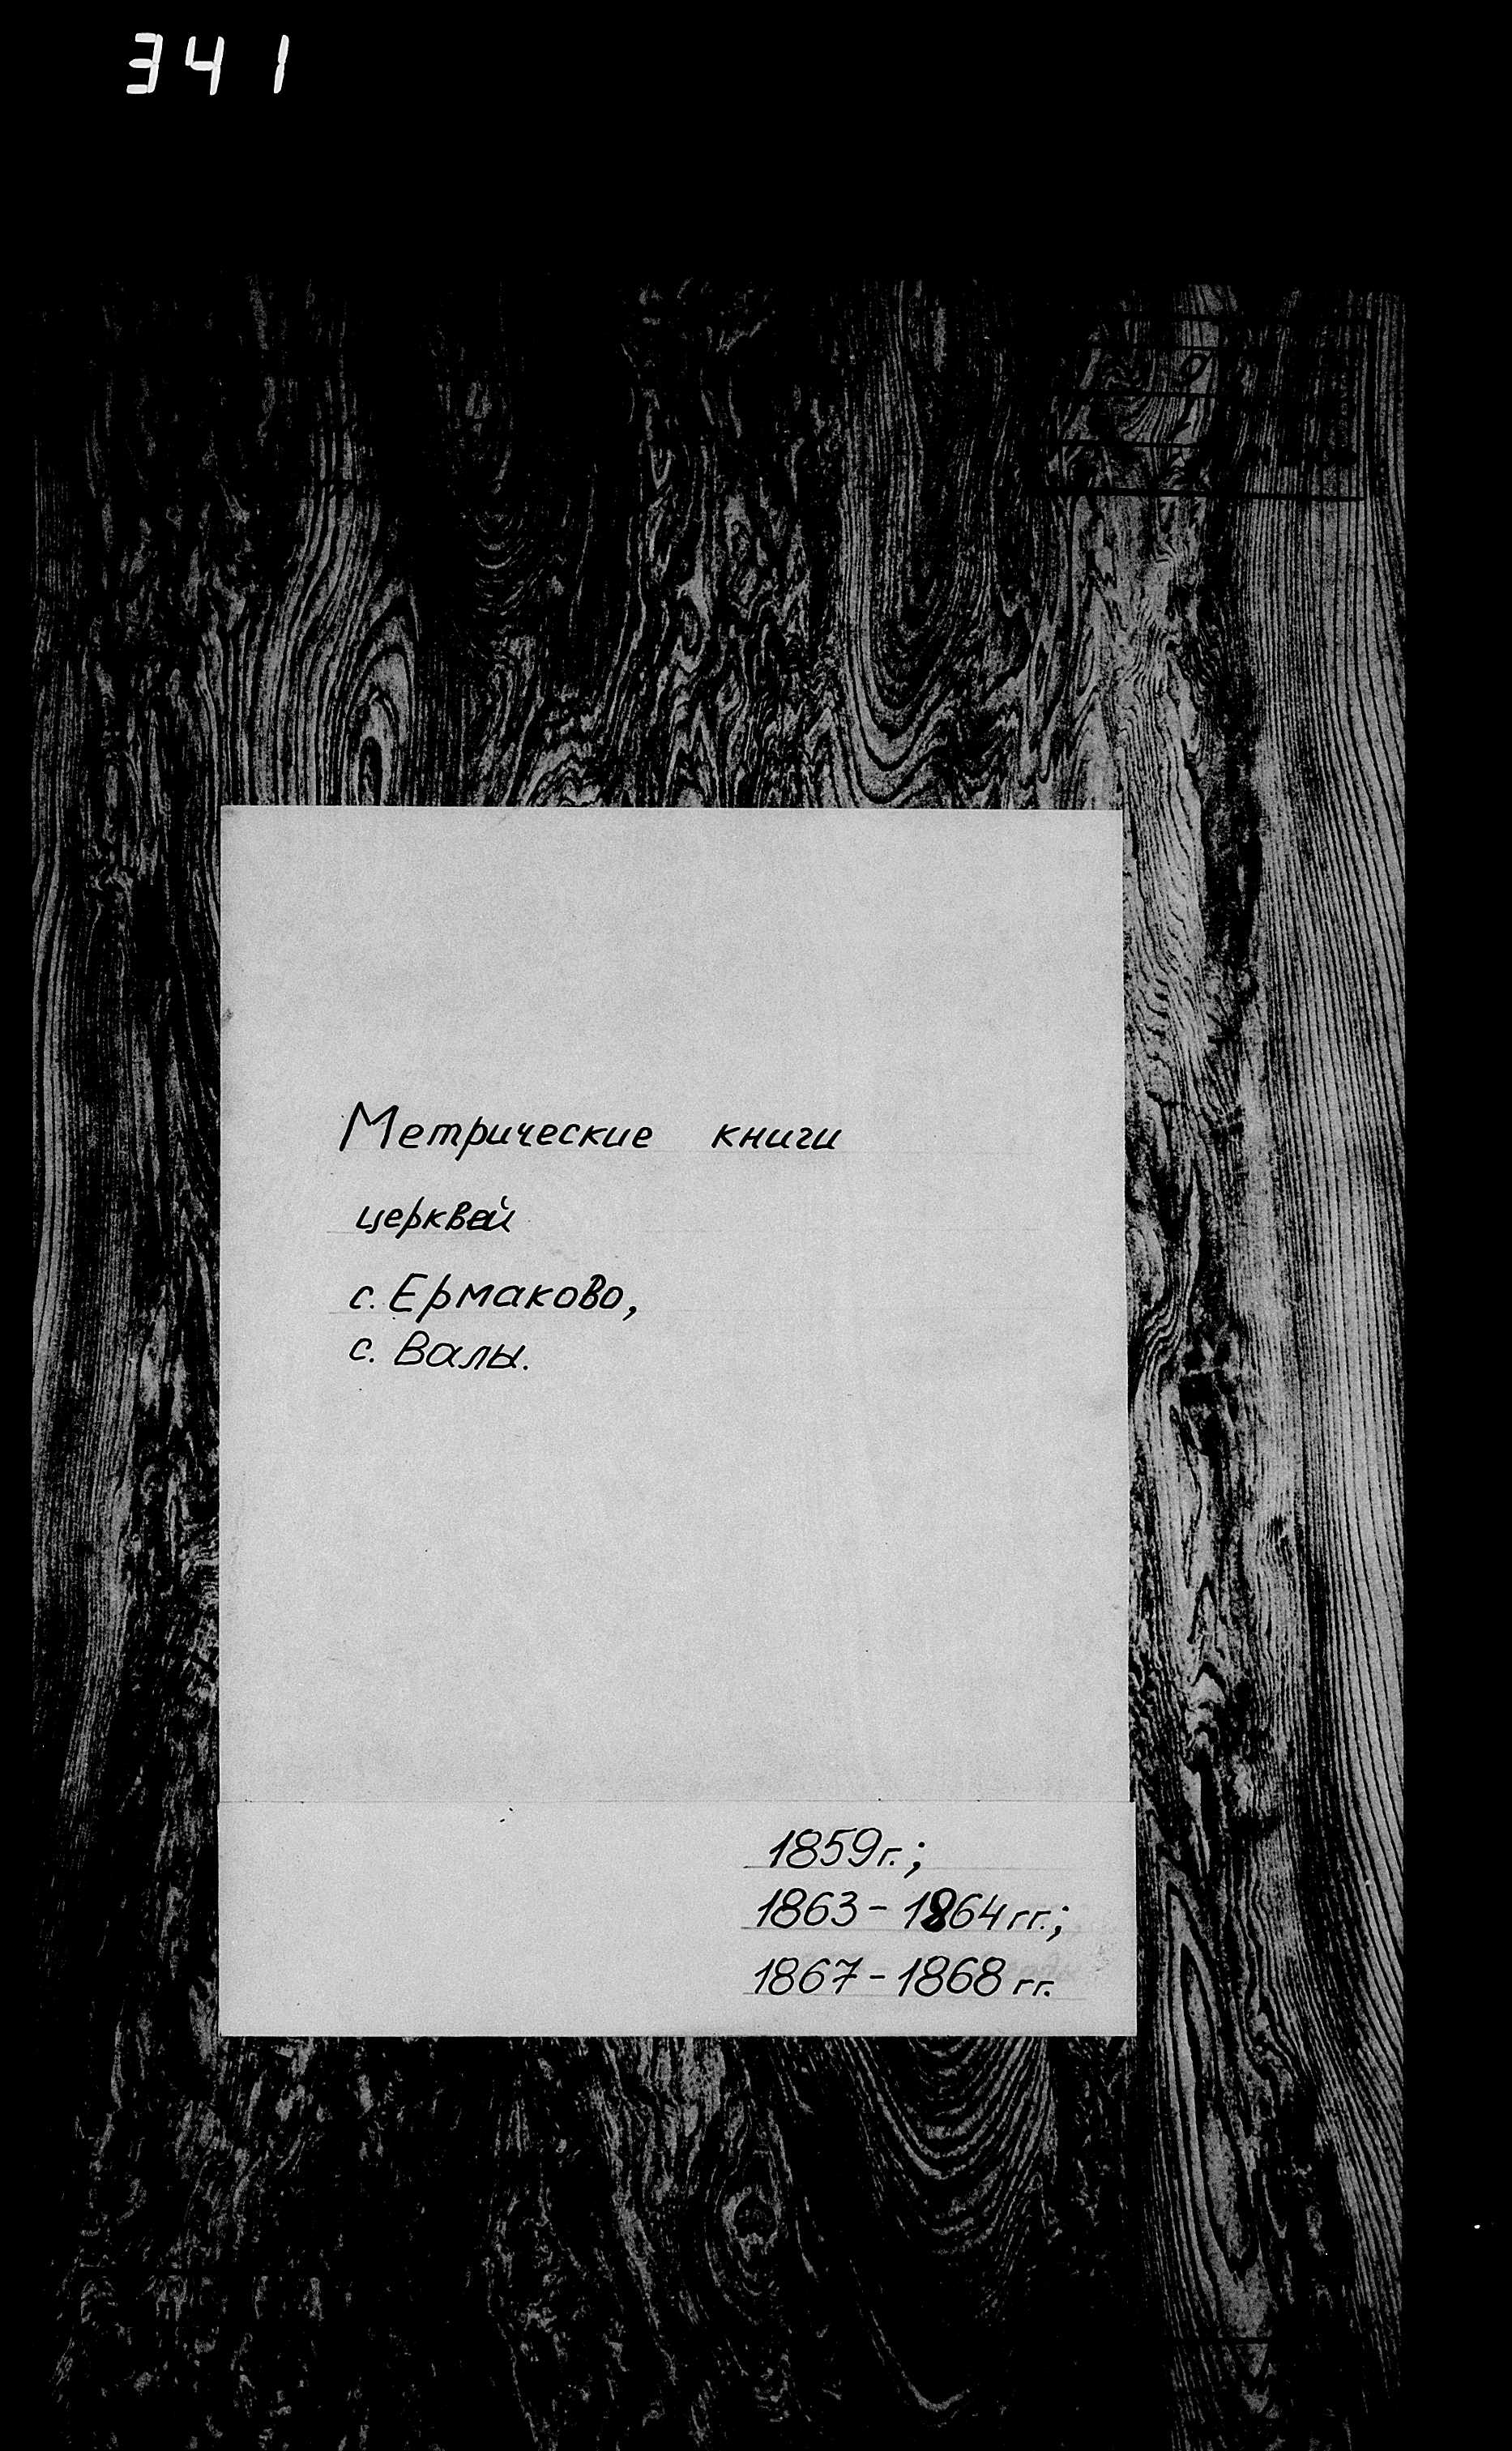 341
Метрические книги
церквей
с. Ермаково,
с. Валы.
1859г.;
1863-1864гг.;
1867-1868гг.